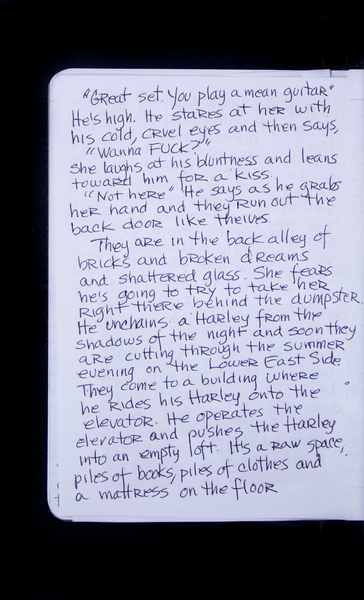 "Great set. You play a mean guitar"
He's high. He stares at her with
his cold, cruel eyes and then says,
"Wanna FUCK?"
She laughs at his bluntness and leans
toward him for a kiss.
"Not here" He says as he grabs
her hand and they run out the
back door like theives.
They are in the back alley of
bricks and broken dreams
and shattered glass. She fears
he's going to try to take her
Right there behind the dumpster.
He unchains a Harley from the
shadows of the night and soon they
are cutting through the summer
evening on the Lower East Side.
They come to a building where
he rides his Harley onto the
elevator. He operates the
elevator and pushes the Harley
into an empty loft. It's a raw space,
piles of books, piles of clothes and
a mattress on the floor